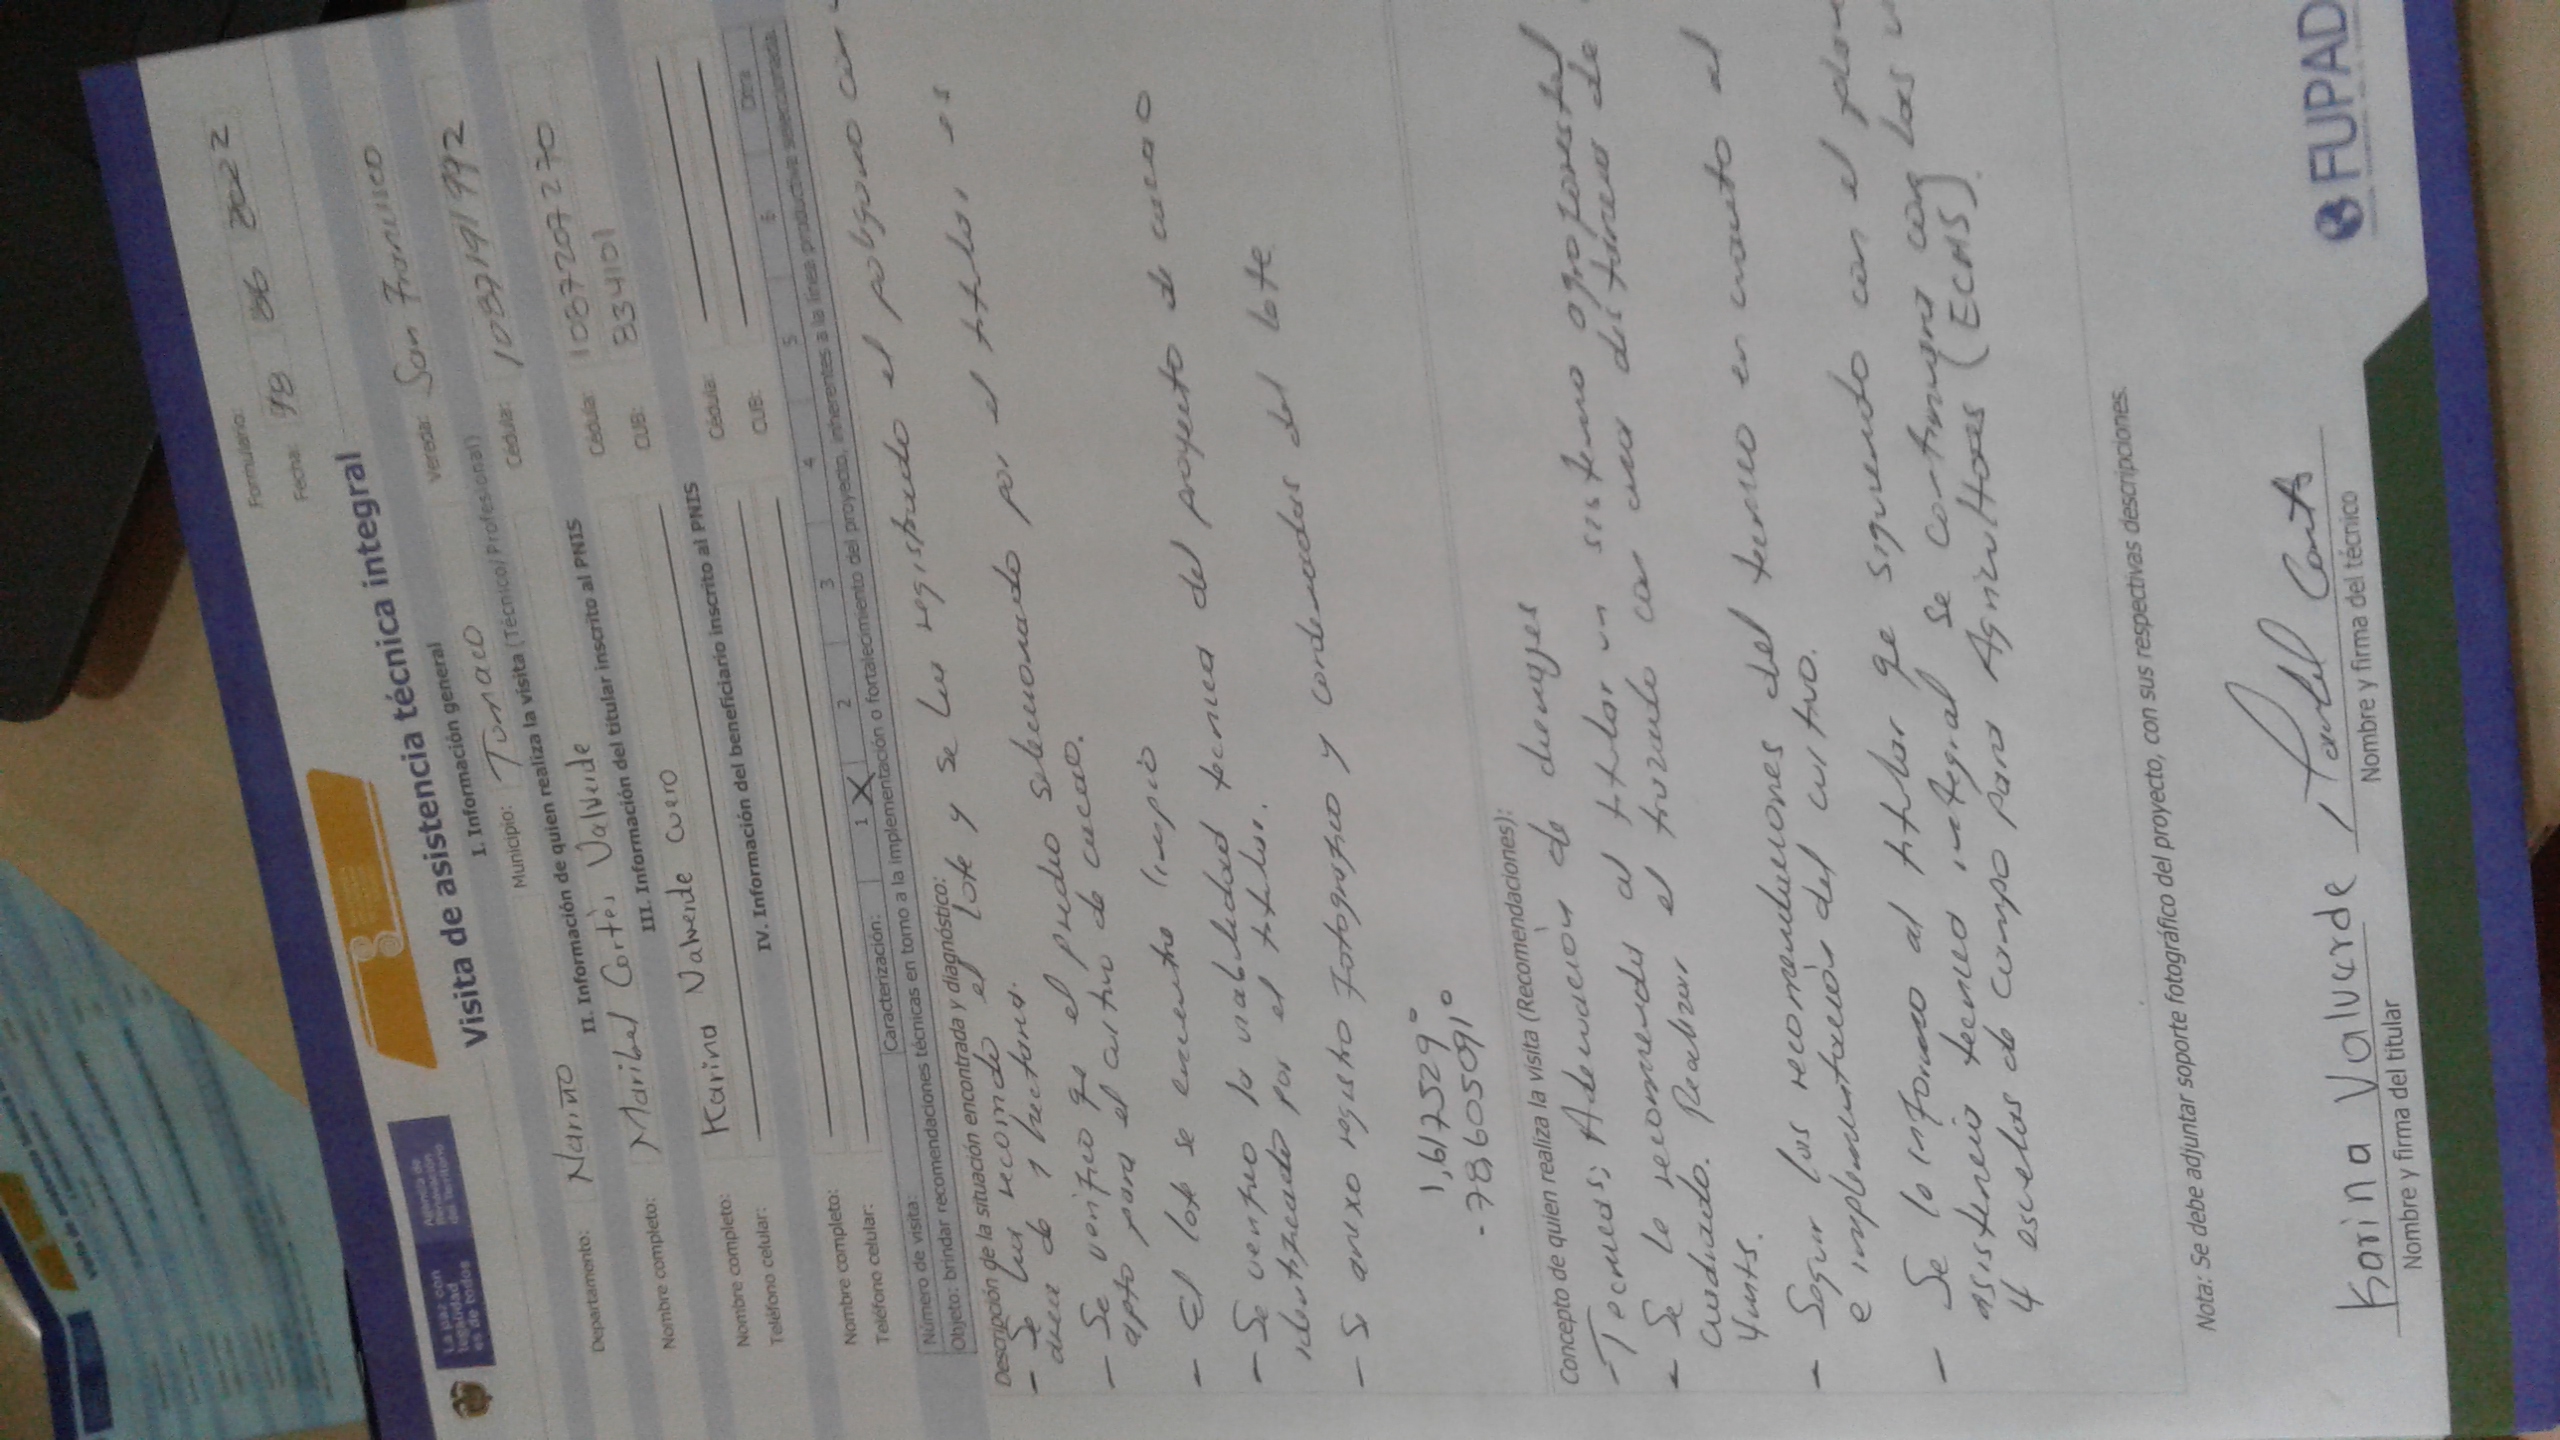 La paz con
legalidad
es de todos
Agencia de
Renovación
del Territorio
Formulario:
Fecha: 18 06 2022
Visita de asistencia técnica integral
I. Información general
Departamento: Nariño Municipio: Tumaco Vereda: San Francisco
II. Información de quien realiza la visita (Técnico/Profesional)
Nombre completo: Maribel Cortès Valverde Cédula: 1087191992
III. Información del titular inscrito al PNIS
Nombre completo: Karina Valverde Cuero Cédula: 1087207270
Teléfono celular: CUB: 834101
IV. Información del beneficiario inscrito al PNIS
Nombre completo: Cédula:
Teléfono celular: CUB:
Número de visita: Caracterización: 1 X 2 3 4 5 6 Otra
Objeto: brindar recomendaciones técnicas en torno a la implementación o fortalecimiento del proyecto, inherentes a la línea productiva seleccionada
Descripción de la situación encontrada y diagnóstico:
- Se hus recorrido el lote y se hus registrado el poligono con
area de 1 hectarea.
- Se verifico qe el predio seleccionado por el titular es
apto para el cultivo de cacao.
- El lote se encuentra limpio
- Se verifico la viabilidad tecnica del proyecto de cacao
identificado por el titular.
- Se anexo registro Fotografico y cordenadas del lote
1,6172529°
-78,6050910
Concepto de quien realiza la visita (Recomendaciones):
- Tecnicas; Adecuación de drenajes
- Se le recomienda al titular un sistema agroforestal
cuadrado. Realizar el trazado con una distancia de
4mts.
- Seguir las recomendaciones del tecnico en cuanto al
e implementación del cultivo.
- Se le informo al titular qe siguiendo con el plan
asistencia tecnica integral se continuara con las
4 escuelas de campo para Agricultores (ECAS).
Nota: Se debe adjuntar soporte fotográfico del proyecto, con sus respectivas descripciones.
Karina Valverde
Nombre y firma del titular
Nombre y firma del técnico
FUPAD